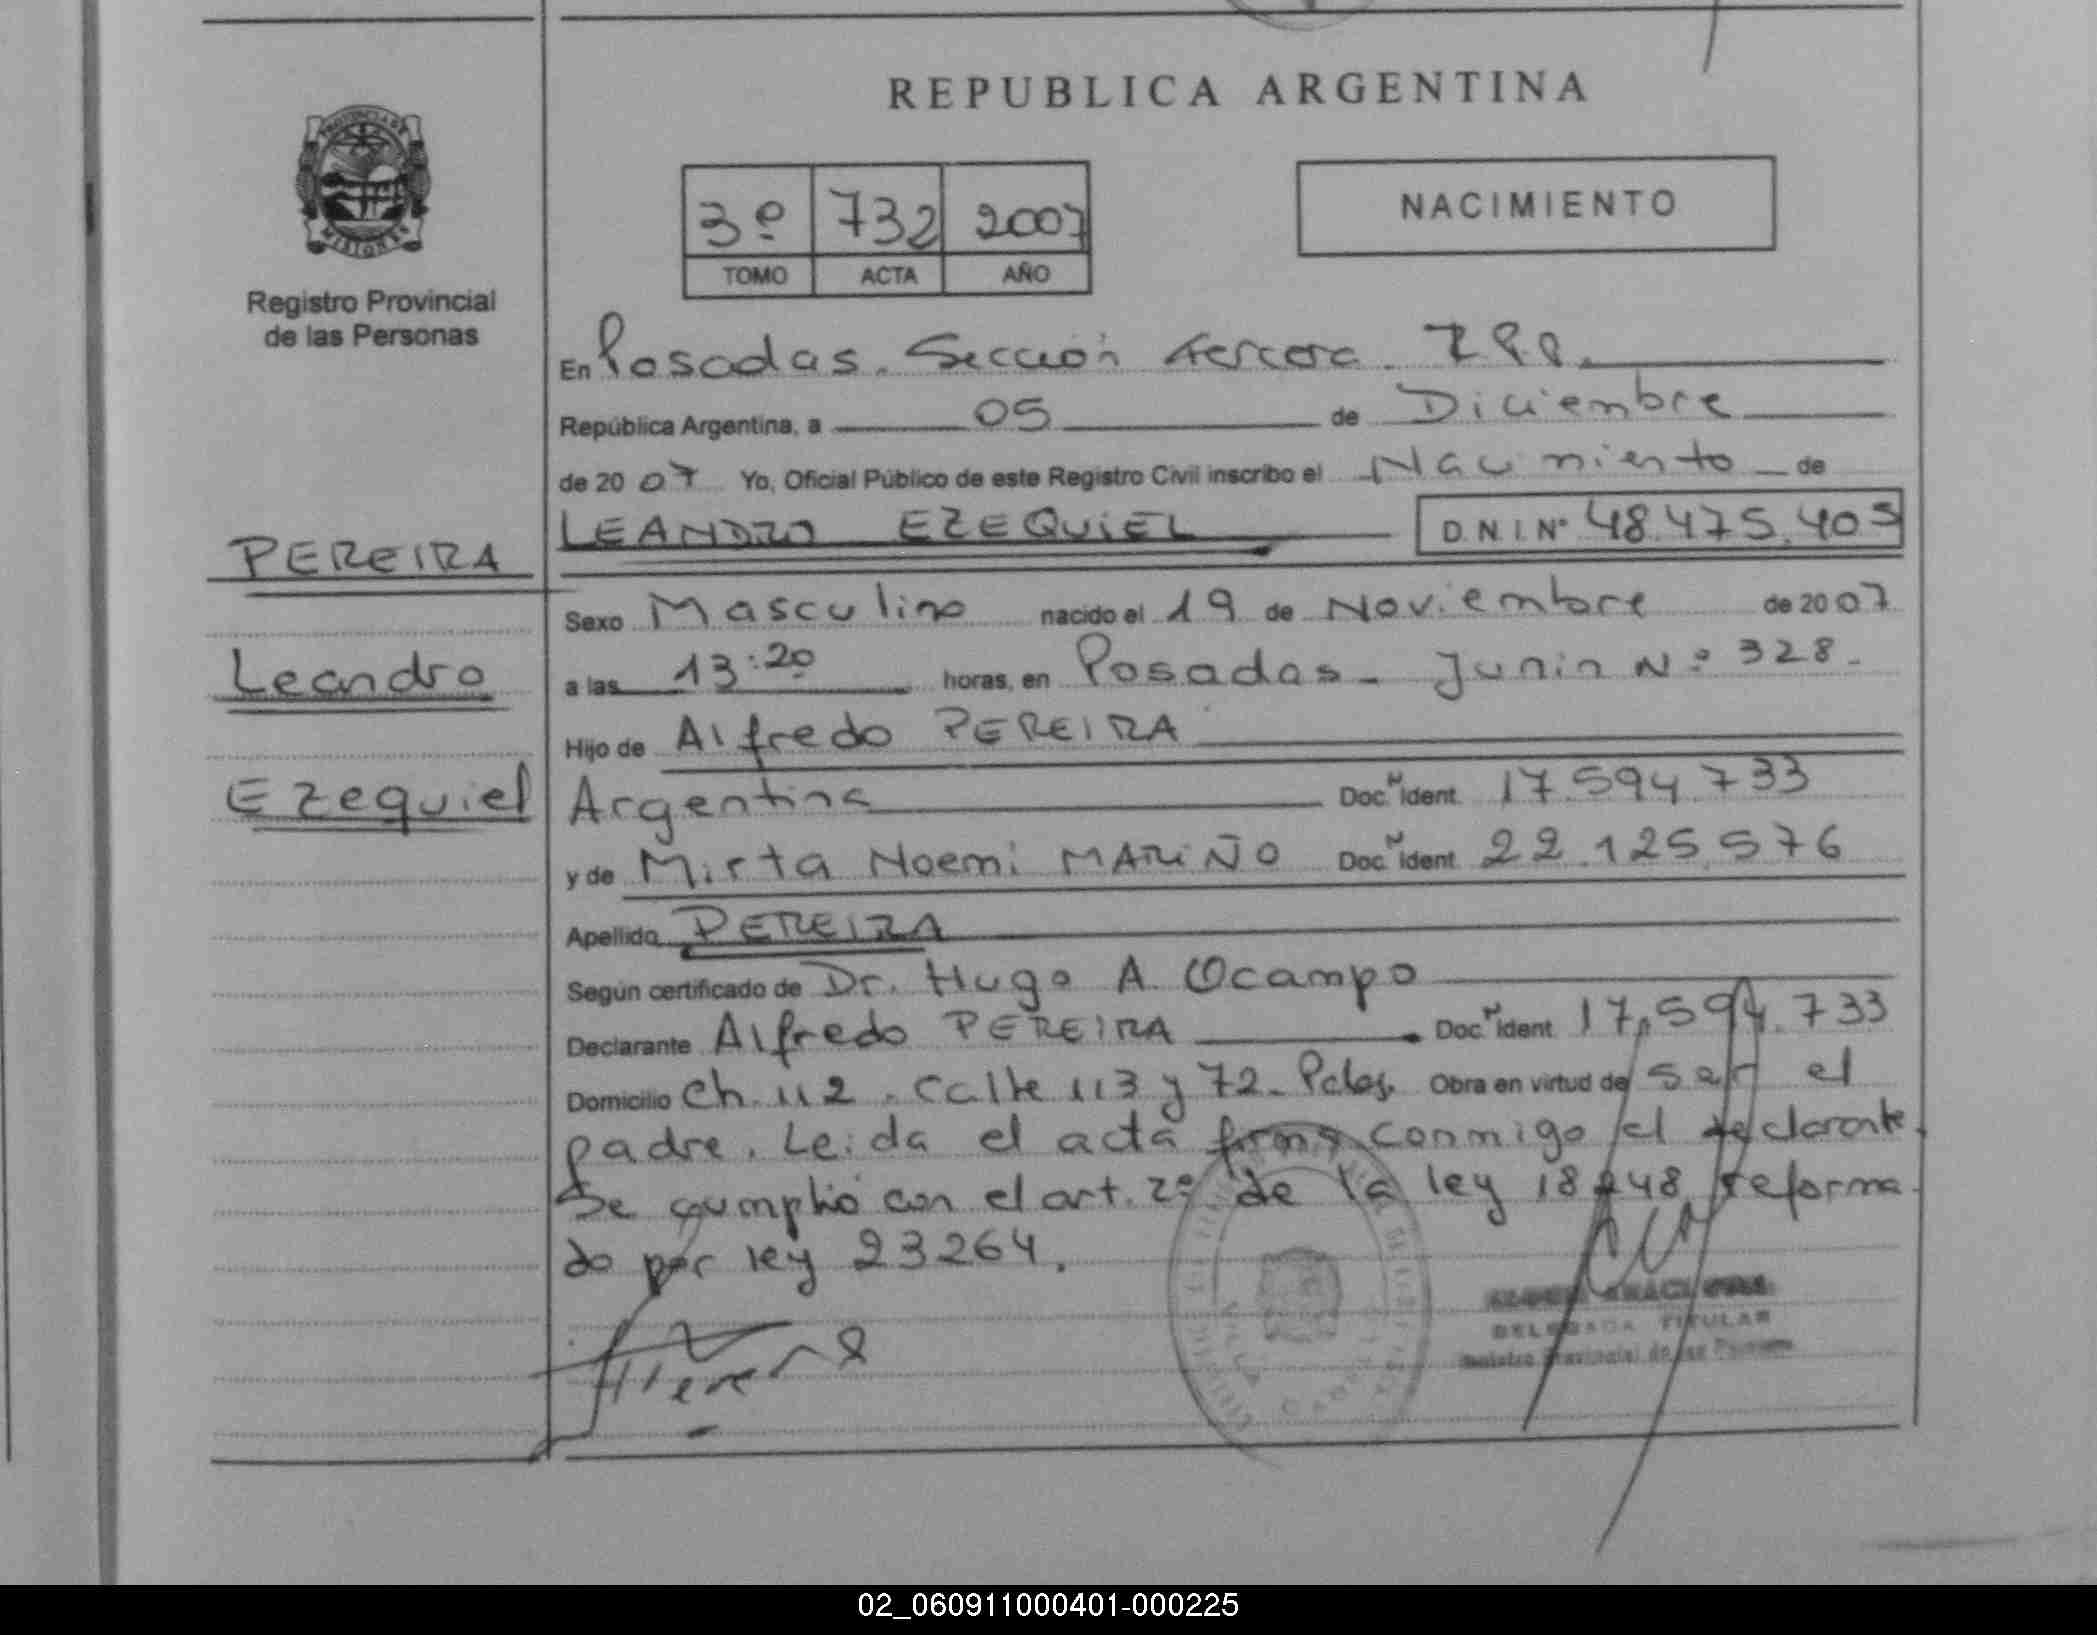 REPUBLICA ARGENTINA
PROVINCIA DE
MISIONES
Registro Provincial
de las Personas
3º 732 2007
TOMO ACTA AÑO
NACIMIENTO
En Posadas. Sección tercera.
República Argentina, a 05 de Diciembre
de 2007 Yo, Oficial Público de este Registro Civil inscribo el Nacimiento de
LEANDRO EZEQUIEL D.N.I.Nº 48.475.405
PEREIRA
Leandro
Ezequiel
Sexo Masculino nacido el 19 de Noviembre de 2007
a las 13:20 horas, en Posadas - Junin Nº 328.
Hijo de Alfredo PEREIRA
Argentina Doc. Ident. 17.594.733
y de Mirta Noemi MARIÑO Doc. Ident. 22.125.576
Apellido PEREIRA
Según certificado de Dr. Hugo A. Ocampo
Declarante Alfredo PEREIRA Doc. Ident. 17.594.733
Domicilio Ch. 112. Calle 113 y 72- Pdas. Obra en virtud de ser el
padre. Leida el acta firma conmigo el declarante.
Se cumplió con el art. 2º de la ley 18248 reforma
do por ley 23264.
DELEGADA TITULAR
Registro Provincial de las Personas
02_060911000401-000225